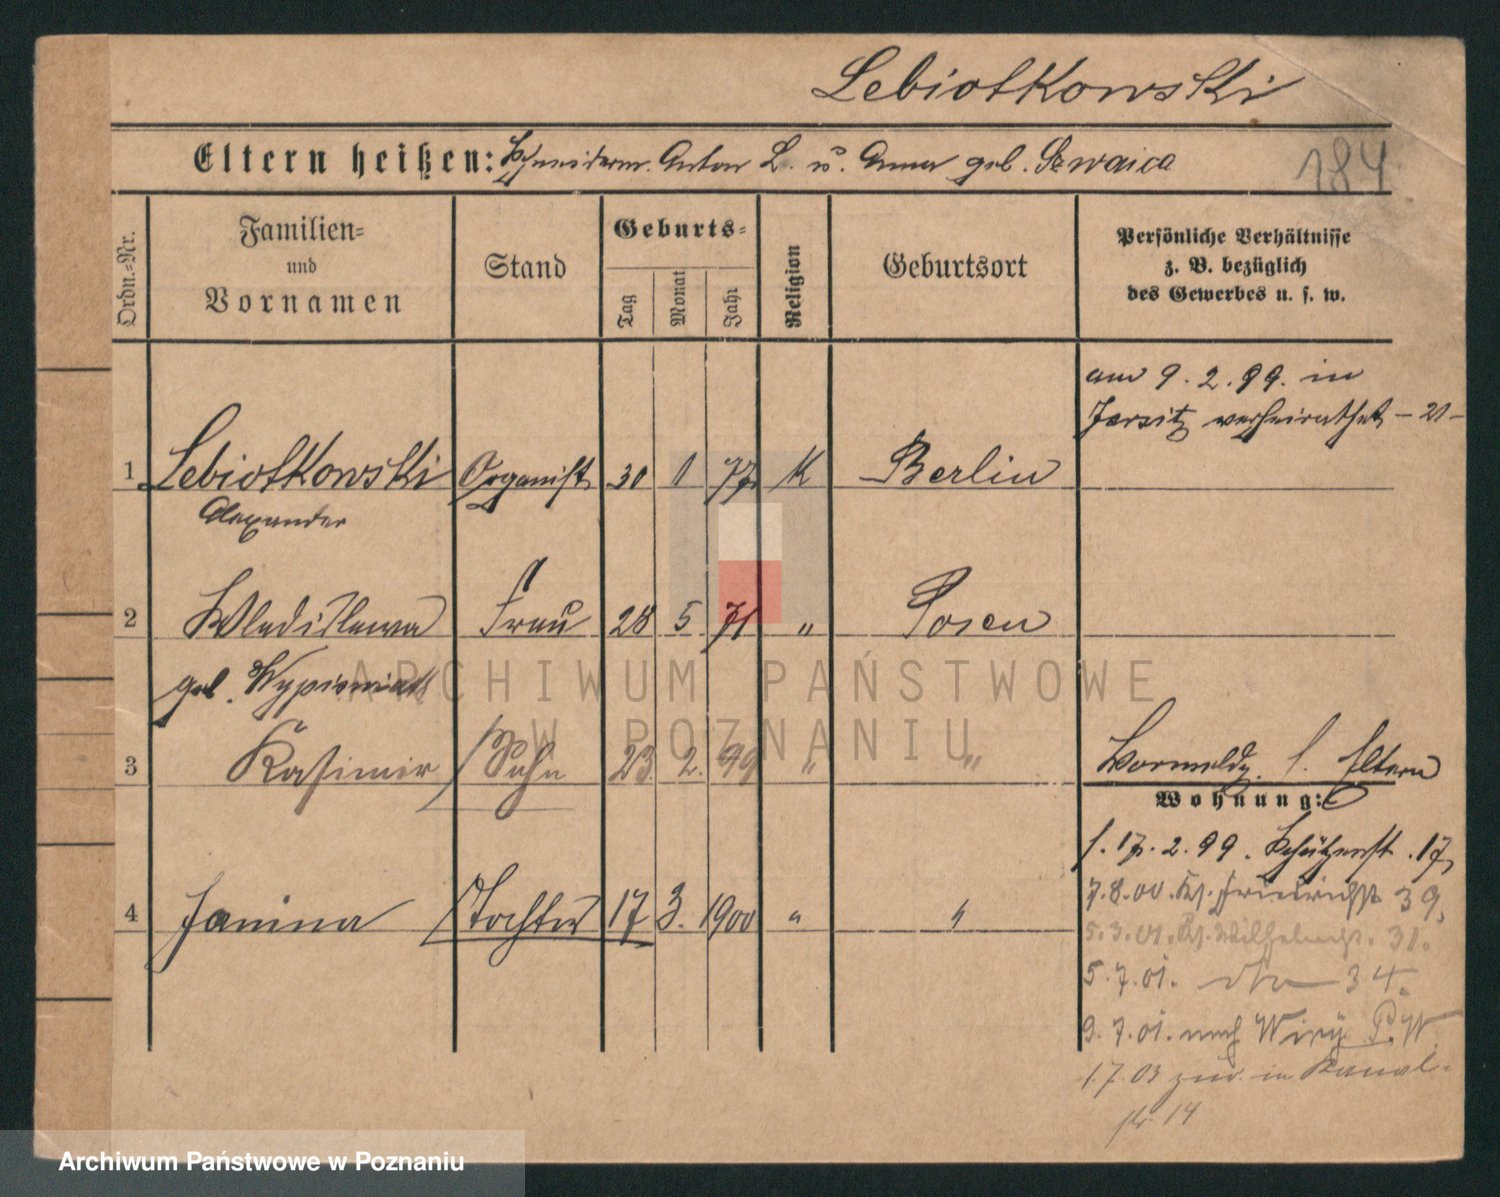 Lebiotkowski
Eltern heißen: Schneiderm. Anton L. u. Anna geb. Szwaica
184
Ordn.-Nr.
Familien- und Vornamen
Stand
Geburts-
Tag
Monat
Jahr
Religion
Geburtsort
Persönliche Verhältnisse
z. B. bezüglich
des Gewerbes u. s. w.
am 9. 2. 99. in
Jersitz verheirathet – 21 –
1 Lebiotkowski Organist 30 1 77 K Berlin
Alexander
2 Wladislawa Frau 28 5 71 " Posen
geb.
ARCHIWUM PAŃSTWOWE
W POZNANIU
3 Kasimir Sohn 23. 2. 99 " " Vormeldg. s. Eltern
Wohnung:
1. 17. 2. 99. Schützenst. 17,
4 Janina Tochter 17 3. 1900 " "
7. 8. 00. Kl. Friedrichst. 39,
5. 3. 01. Kl. Wilhelmst. 31.
5. 7. 01. dto 34.
9. 7. 01. nach Wiry P. W.
1. 7. 03 zur. in Kanal-
str. 14
Archiwum Państwowe w Poznaniu